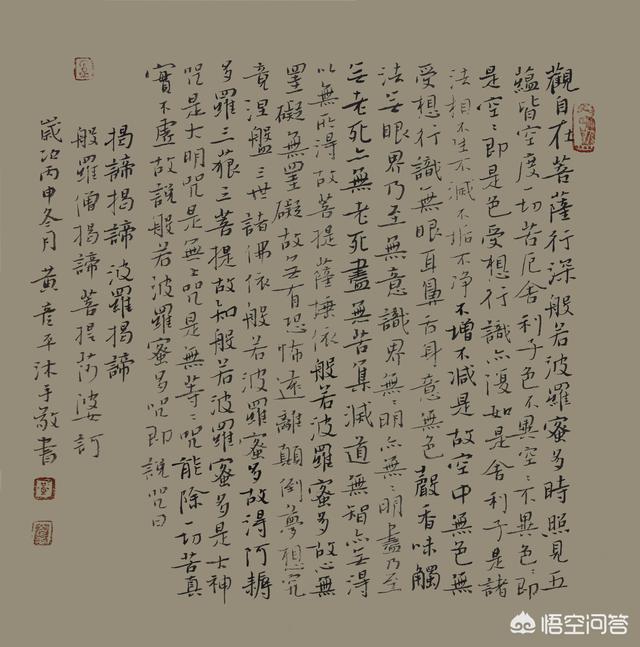 觀自在菩薩行深般若波羅蜜多時照見五
蘊皆空度一切苦厄舍利子色不異空〻不異色〻即
是空〻即是色受想行識亦復如是舍利子是諸
法相不生不滅不垢不净不增不减是故空中無色無
受想行識無眼耳鼻舌身意無色聲香味觸
法无眼界乃至無意識界無〻明亦無〻明盡乃至
无老死亦無老死盡無苦集滅道無智亦无得
以無所得故菩提薩埵依般若波羅蜜多故心無
罣礙無罣礙故无有恐怖遠離顛倒夢想究
竟涅盤三世諸佛依般若波羅蜜多故得阿耨
多羅三藐三菩提故知般若波羅蜜多是大神
咒是大明咒是無上咒是無等〻咒能除一切苦真
實不虛故説般若波羅蜜多咒即説咒曰
揭諦揭諦 波羅揭諦
般羅僧揭諦 菩提莎婆訶
歲次丙申冬月 黄彦平沐手敬書
悟空问答